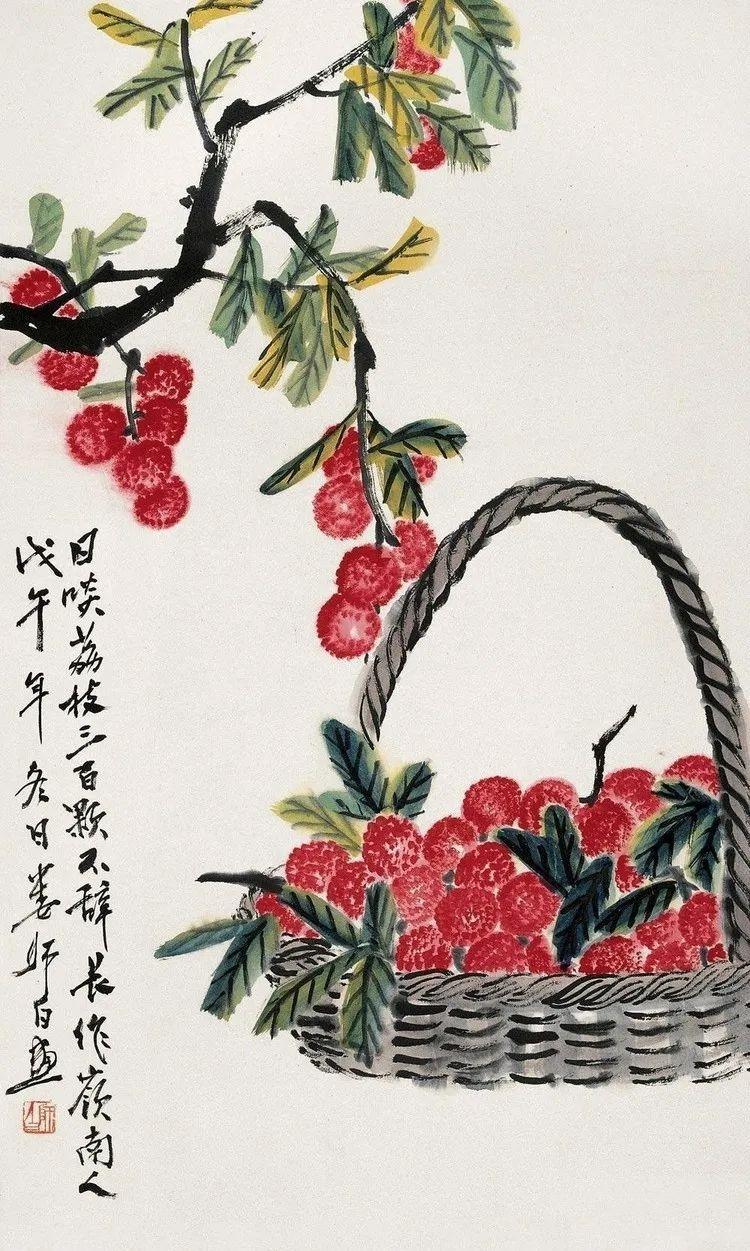 日啖荔枝三百颗不辞长作嶺南人
戊午年冬日娄师白画